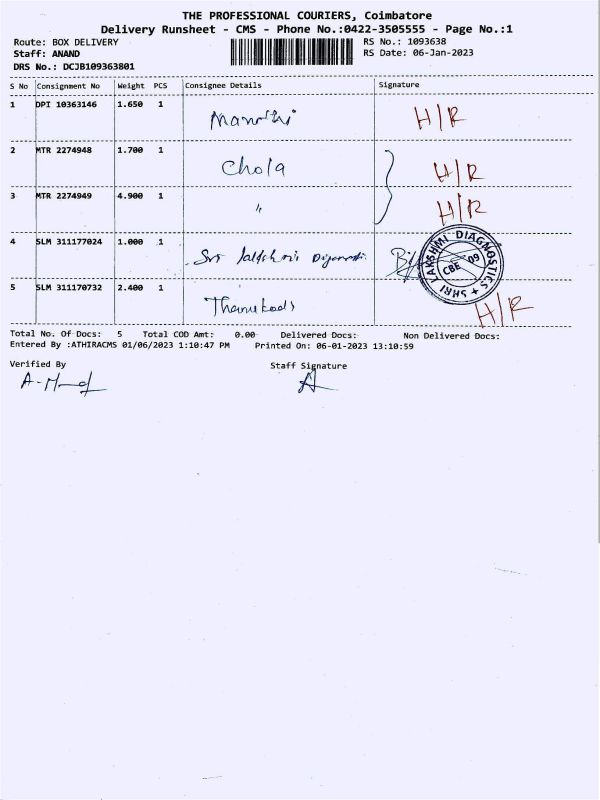 THE PROFESSIONAL COURIERS, Coimbatore
Delivery Runsheet - CMS - Phone No.:0422-3505555 - Page No.:1
Route: BOX DELIVERY RS No.: 1093638
Staff: ANAND RS Date: 06-Jan-2023
DRS No.: DCJB109363801
S No Consignment No Weight PCS Consignee Details Signature
1 DPI 10363146 1.650 1 H/R
2 MTR 2274948 1.700 1 Chola H/R
3 MTR 2274949 4.900 1 " H/R
4 SLM 311177024 1.000 1 Sri
SHRI LAKSHMI DIAGNOSTICS
CBE - 09
5 SLM 311170732 2.400 1 H/R
Total No. Of Docs: 5 Total COD Amt: 0.00 Delivered Docs: Non Delivered Docs:
Entered By :ATHIRACMS 01/06/2023 1:10:47 PM Printed On: 06-01-2023 13:10:59
Verified By Staff Signature